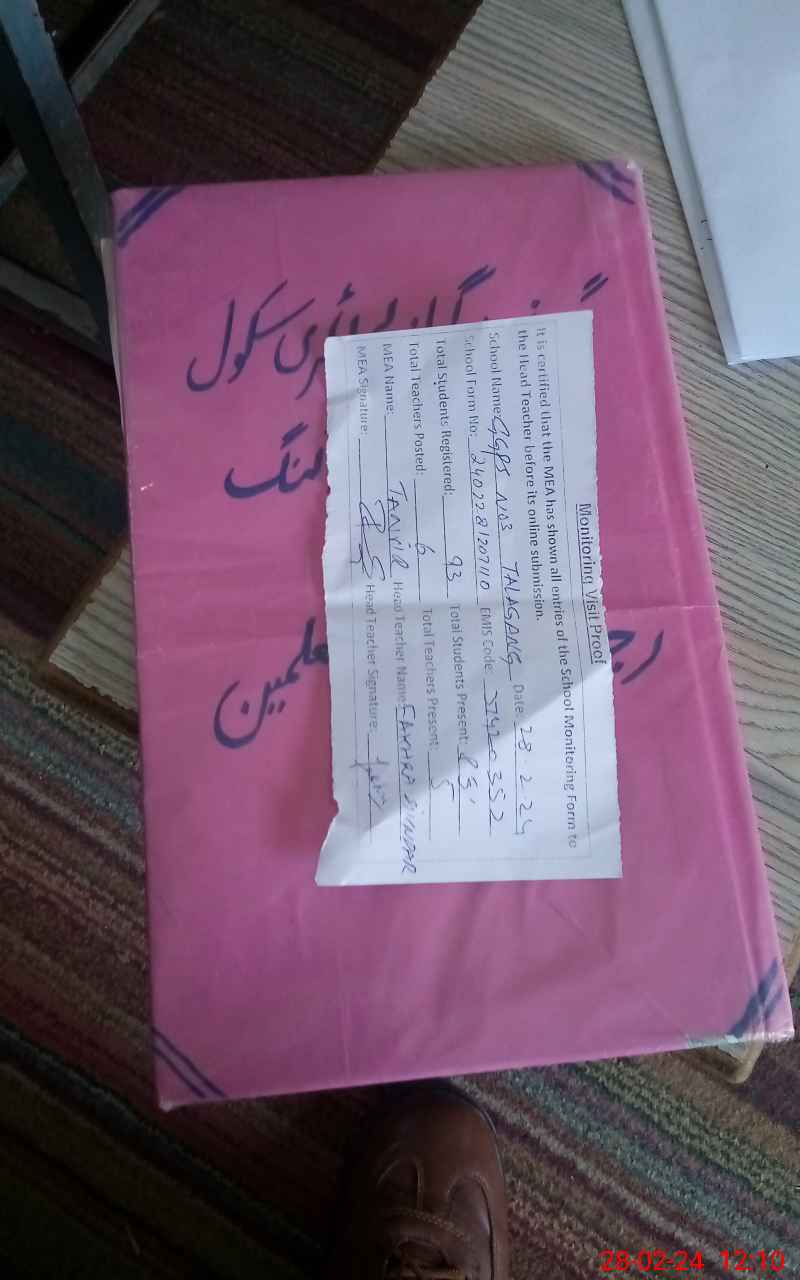 Monitoring Visit Proof
It is certified that the MEA has shown all entries of the School Monitoring Form to
the Head Teacher before its online submission.
School Name: GGPS NO3 TALAGANG Date: 28.2.24
School Form No: 2402281207110 EMIS Code: 37420352
Total Students Registered: 93 Total Students Present: 85
Total Teachers Posted: 6 Total Teachers Present: 5
MEA Name: TANVIR Head Teacher Name:
MEA Signature: Head Teacher Signature:
سکول
28-02-24 12:10